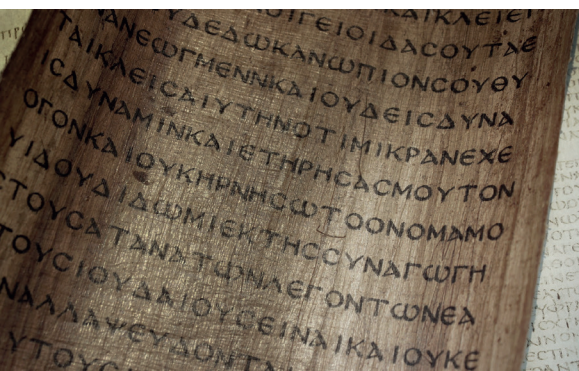 ΚΑΙΚΛΕΙΕΙ
ΟΙΓΕΙΟΙΔΑCΟΥΤΑΕ
ΟΥΔΕΔΩΚΑΝΩΠΙΟΝCΟΥΘΥ
ΑΝΕΩΓΜΕΝΝΚΑΙΟΥΔΕΙCΔΥΝΑ
ΤΑΙΚΛΕΙCΑΙΥΤΗΝΟΤΙΜΙΚΡΑΝΕΧΕ
ΙCΔΥΝΑΜΙΝΚΑΙΕΤΗΡΗCΑCΜΟΥΤΟΝ
ΟΓΟΝΚΑΙΟΥΚΗΡΝΗCΩΤΟΟΝΟΜΑΜΟ
ΥΙΔΟΥΔΙΔΩΜΙΕΚΤΗCCΥΝΑΓΩΓΗ
ΕΤΟΥCΑΤΑΝΑΤΩΝΛΕΓΟΝΤΩΝΕΑ
ΤΟΥCΙΟΥΔΑΙΟΥCΕΙΝΑΙΚΑΙΟΥΚΕ
ΝΑΛΛΑΨΕΥΔΟΝΤΑΙ
ΥΤΟΥC